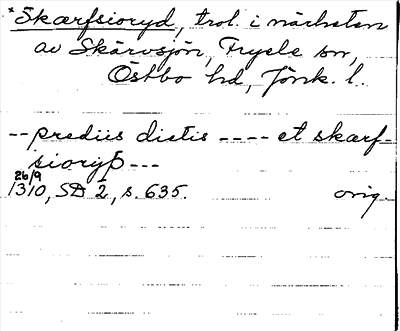 *Skærfsioryd, trol. i närheten
av Skärvsjön, Fryele sn,
Östbo hd, Jönk. l.
-- prediis dictis ---- et skærf-
sioryþ ---
26/9
1310, SD 2, s. 635. orig.